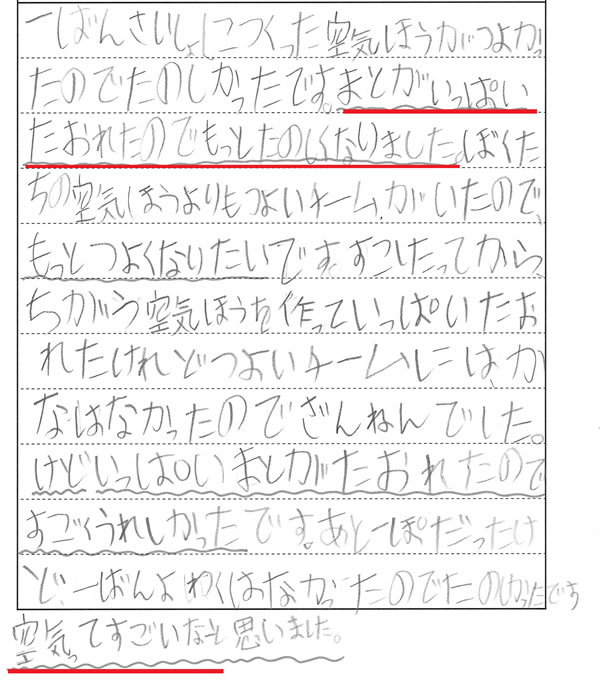 一ばんさいしょにつくった空気ほうがつよかっ
たのでたのしかったです。まとがいっぱい
たおれたのでもっとたのしくなりました。ぼくた
ちの空気ほうよりもつよいチームがいたので、
もっとつよくなりたいです。すこしたってから、
ちがう空気ほうを作っていっぱいたお
れたけれどつよいチームには、か
なはなかったのでざんねんでした。
けどいっぱいまとがたおれたので
すごくうれしかったです。あと一ぽだったけ
ど、一ばんよわくはなかったのでたのしかったです
空気ってすごいなーと思いました。